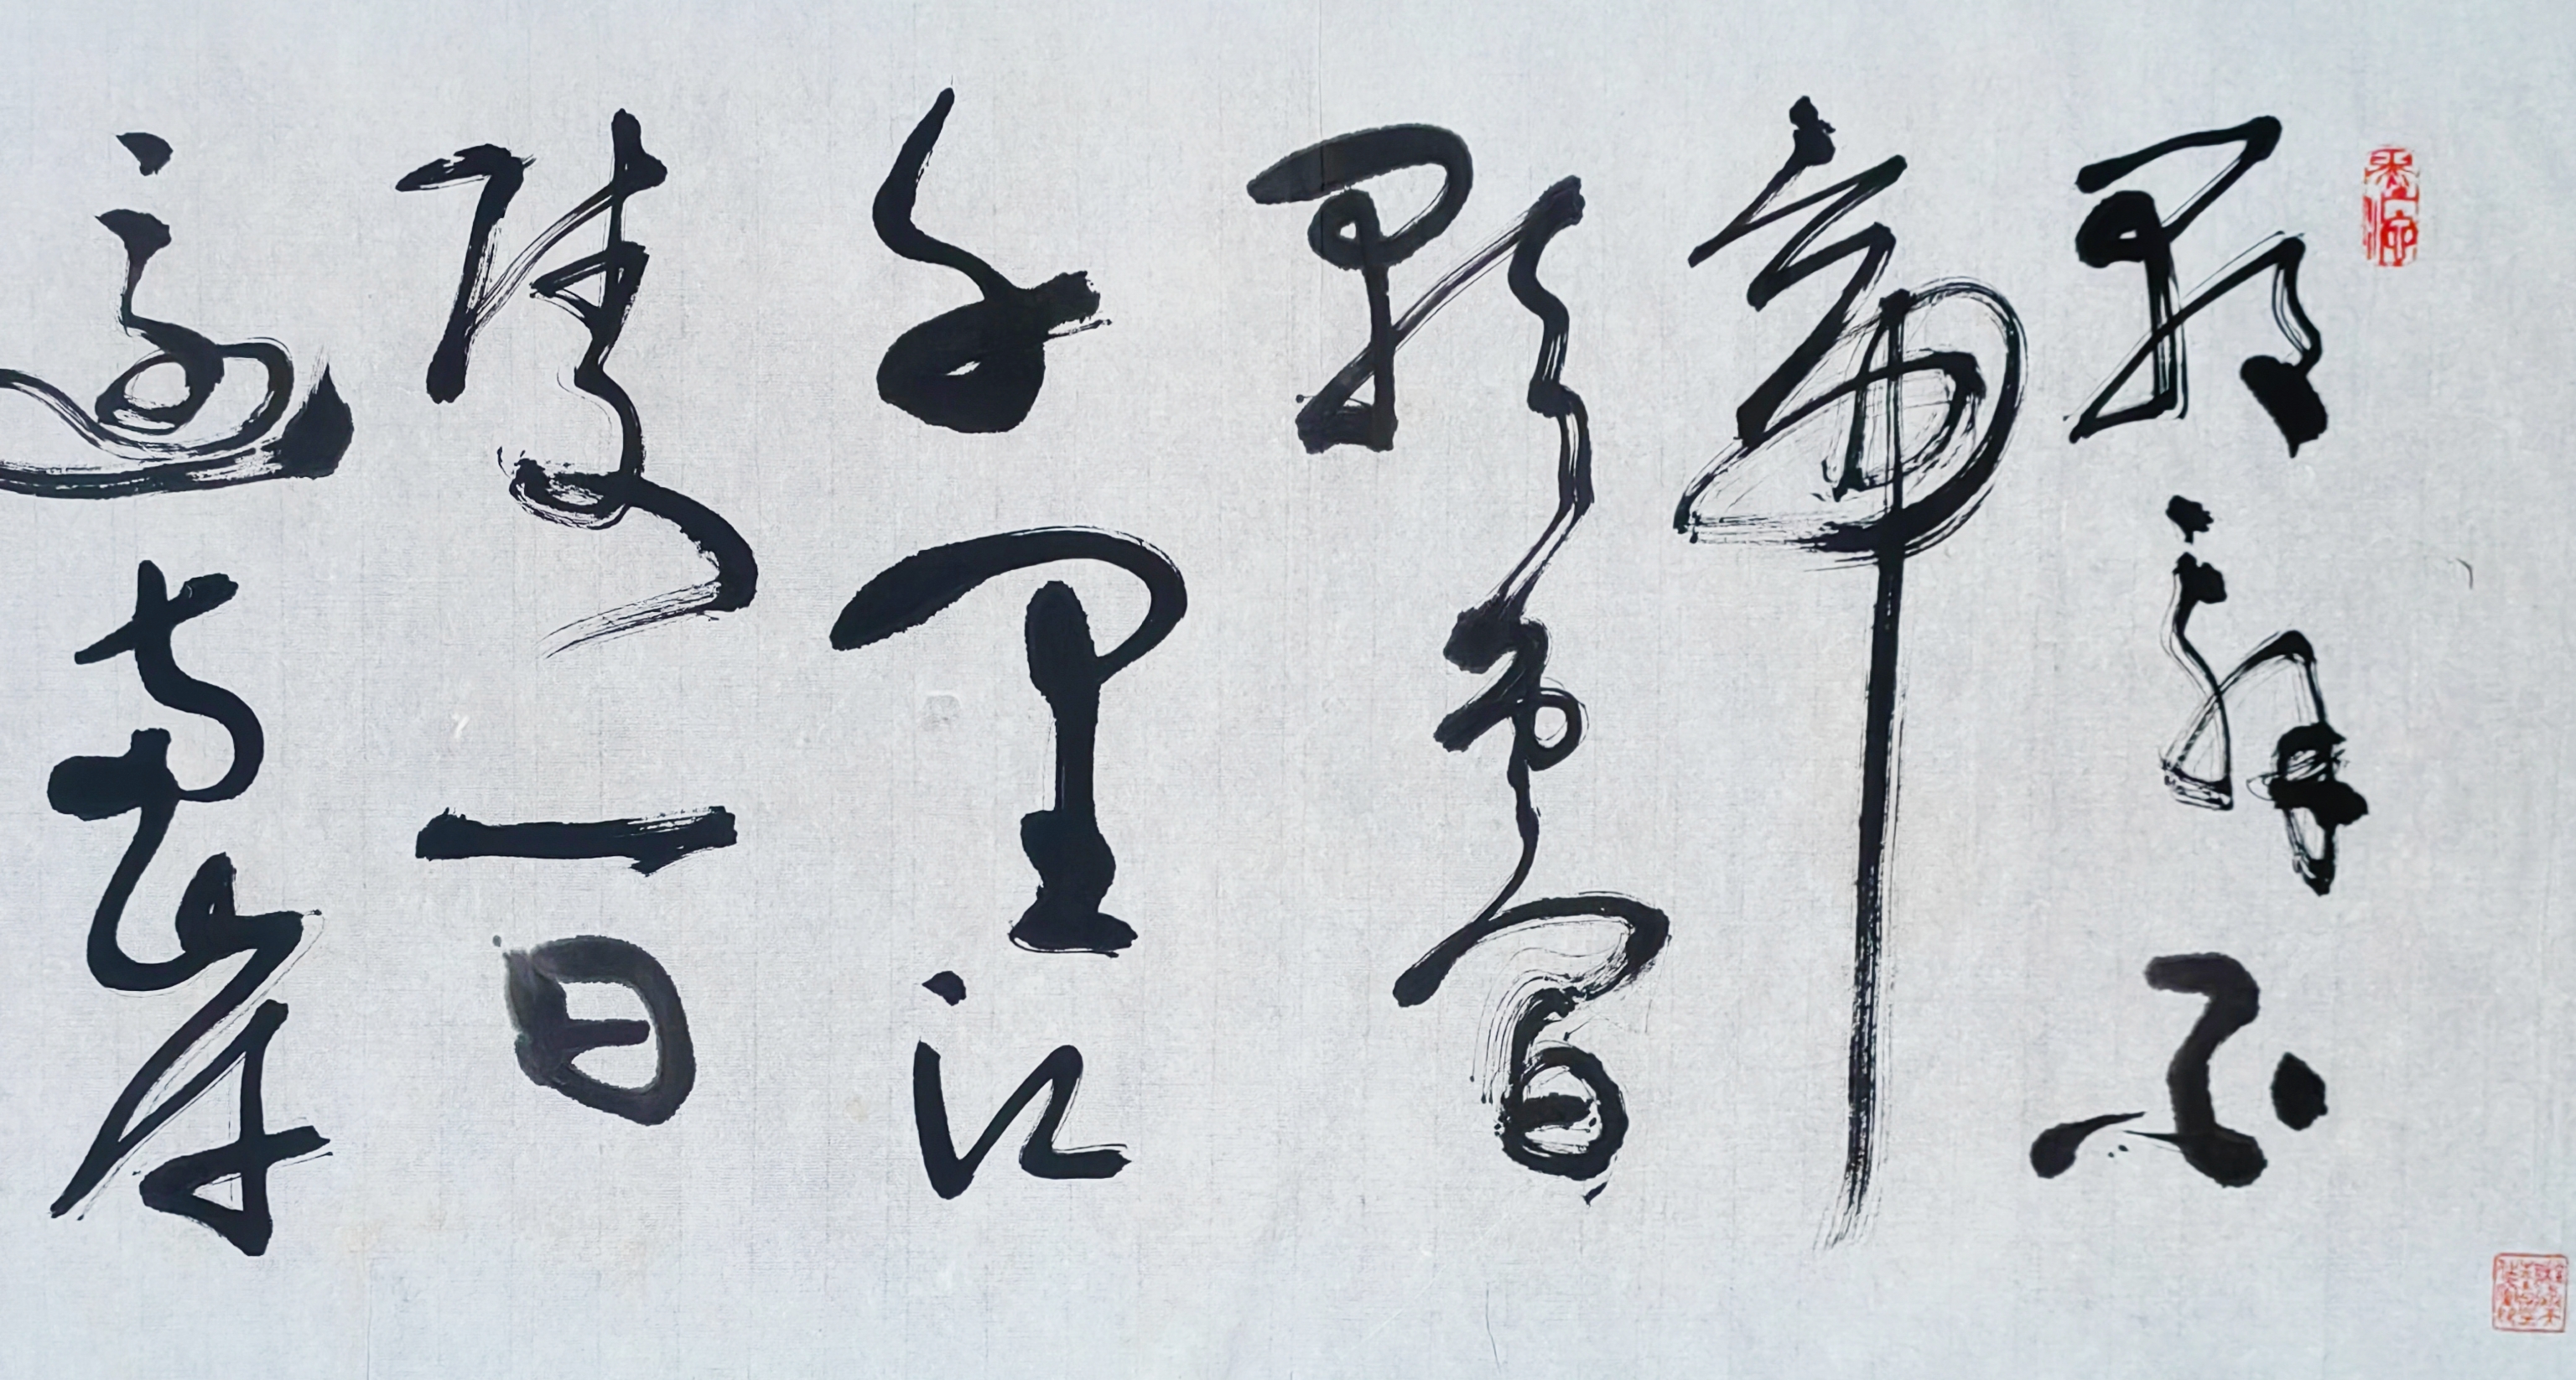 朝辭白
帝
彩雲間
千里江
陵一日
還兩岸